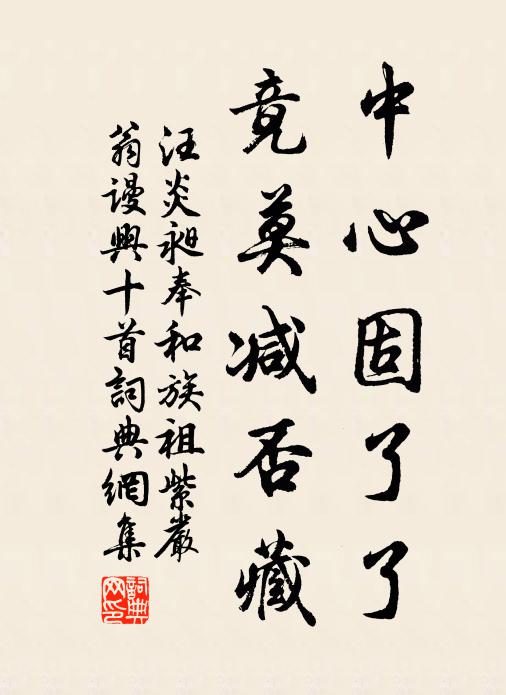 中心固了了
竟莫减否藏
汪炎昶奉和族祖紫巖
翁谩興十首詞典網集
詞典網印